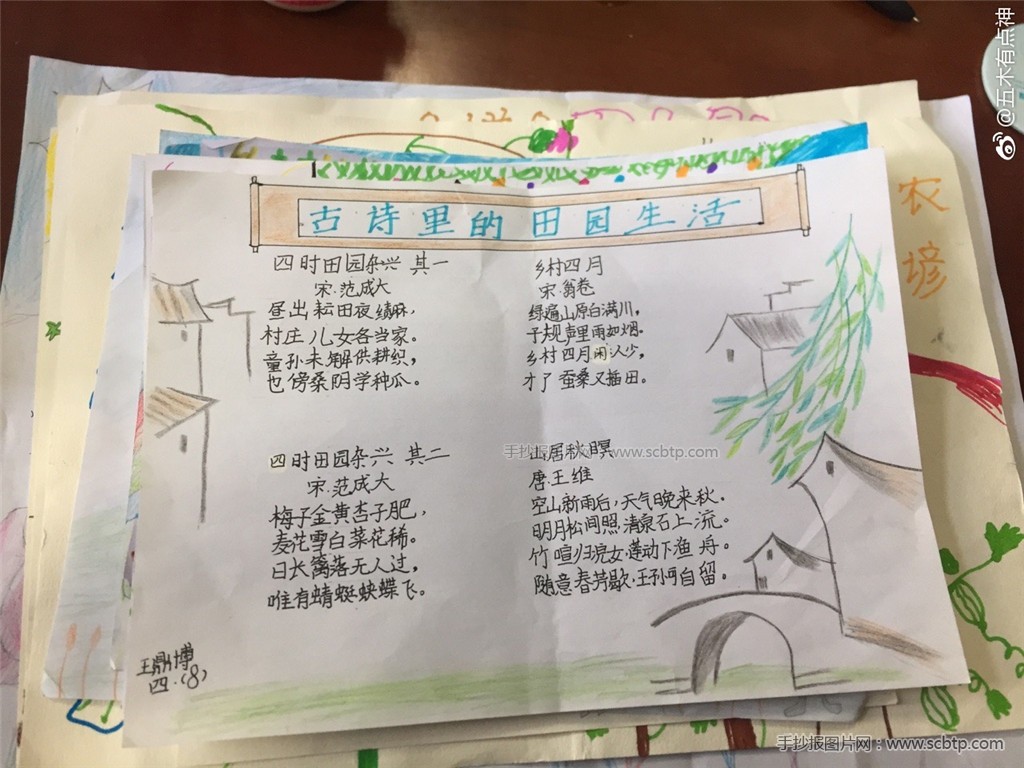 古诗里的田园生活
四时田园杂兴 其一
宋·范成大
昼出耘田夜绩麻,
村庄儿女各当家。
童孙未解供耕织,
也傍桑阴学种瓜。
乡村四月
宋 翁卷
绿遍山原白满川,
子规声里雨如烟。
乡村四月闲人少,
才了蚕桑又插田。
四时田园杂兴 其二
宋·范成大
梅子金黄杏子肥,
麦花雪白菜花稀。
日长篱落无人过,
唯有蜻蜓蛱蝶飞。
山居秋暝
唐·王维
空山新雨后,天气晚来秋。
明月松间照,清泉石上流。
竹喧归浣女,莲动下渔舟。
随意春芳歇,王孙可自留。
王鼎博
四·(8)
农
谚
@五木有点神
手抄报图片网 www.scbtp.com
手抄报图片网:www.scbtp.com